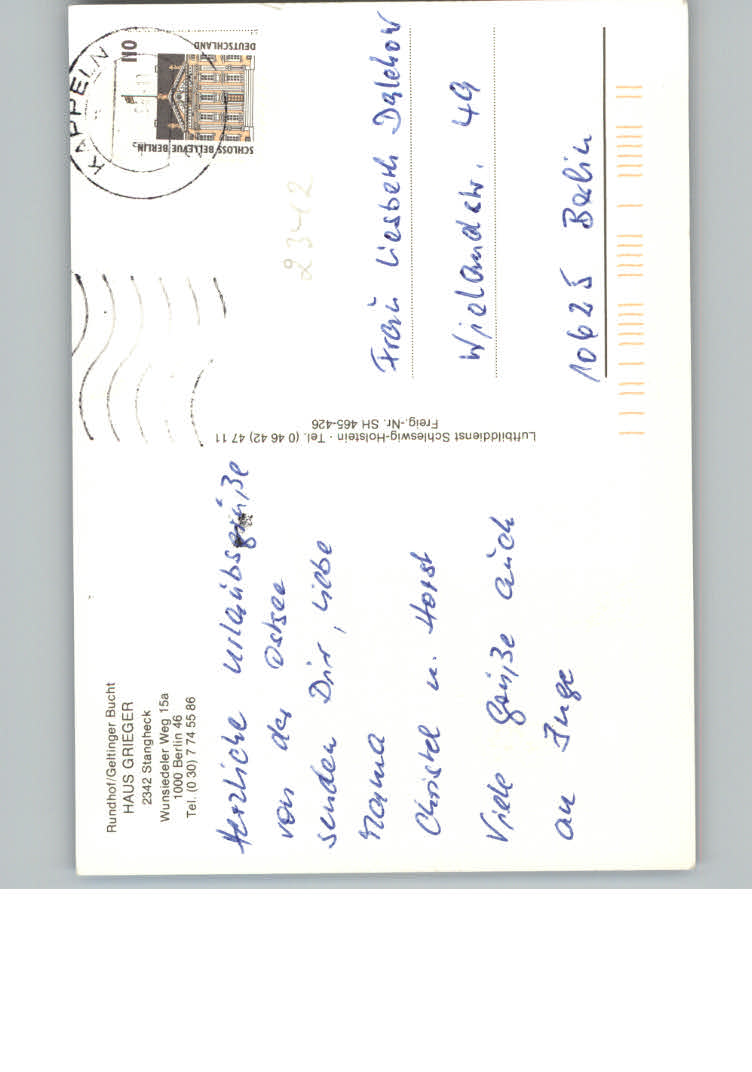 Rundhof/Geltinger Bucht
HAUS GRIEGER
2342 Stangheck
Wunsiedeler Weg 15a
1000 Berlin 46
Tel. (0 30) 7 74 55 86
Herzliche Urlaubsgrüße
von der Ostsee
senden Dir, liebe
Mama
Christel u. Horst
Viele Grüße auch
an Inge
Luftbilddienst Schleswig-Holstein · Tel. (0 46 42) 47 11
Freig.-Nr. SH 465-426
KAPPELN
DEUTSCHLAND
110
SCHLOSS BELLEVUE BERLIN
23412
Frau Liesbeth Dalchow
Wielandstr. 49
10625 Berlin